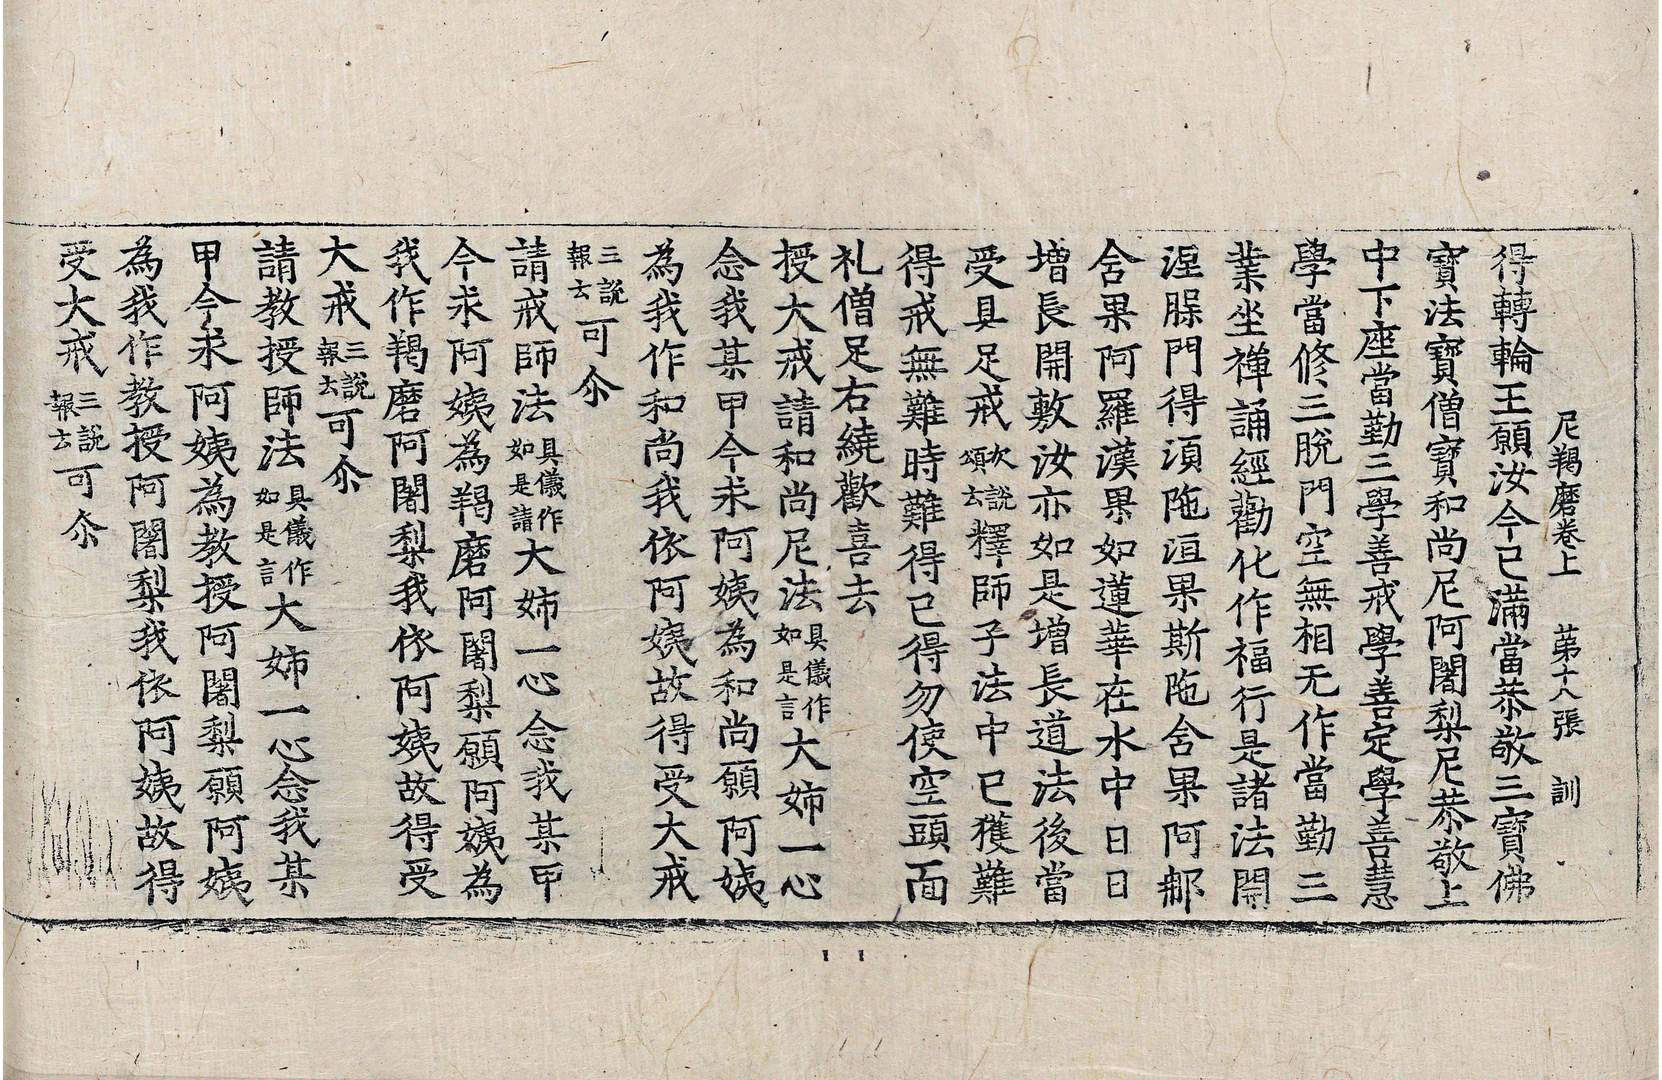 尼羯磨卷上　第十八張　訓
得轉輪王願汝今已滿當恭敬三寶佛
寶法寶僧寶和尚尼阿闍梨尼恭敬上
中下座當勤三學善戒學善定學善慧
學當修三脫門空無相无作當勤三
業坐禪誦經勸化作福行是諸法開
涅䏶門得須陁洹果斯陁含果阿那
含果阿羅漢果如蓮華在水中日日
增長開敷汝亦如是增長道法後當
受具足戒次說頌云釋師子法中已獲難
得戒無難時難得已得勿使空頭面
礼僧足右繞歡喜去
授大戒請和尚尼法具儀作如是言大姉一心
念我某甲今求阿姨為和尚願阿姨
為我作和尚我依阿姨故得受大戒
三說報云可尒
請戒師法具儀作如是請大姉一心念我某甲
今求阿姨為羯磨阿闍梨願阿姨為
我作羯磨阿闍梨我依阿姨故得受
大戒三說報云可尒
請教授師法具儀作如是言大姉一心念我某
甲今求阿姨為教授阿闍梨願阿姨
為我作教授阿闍梨我依阿姨故得
受大戒三說報云可尒